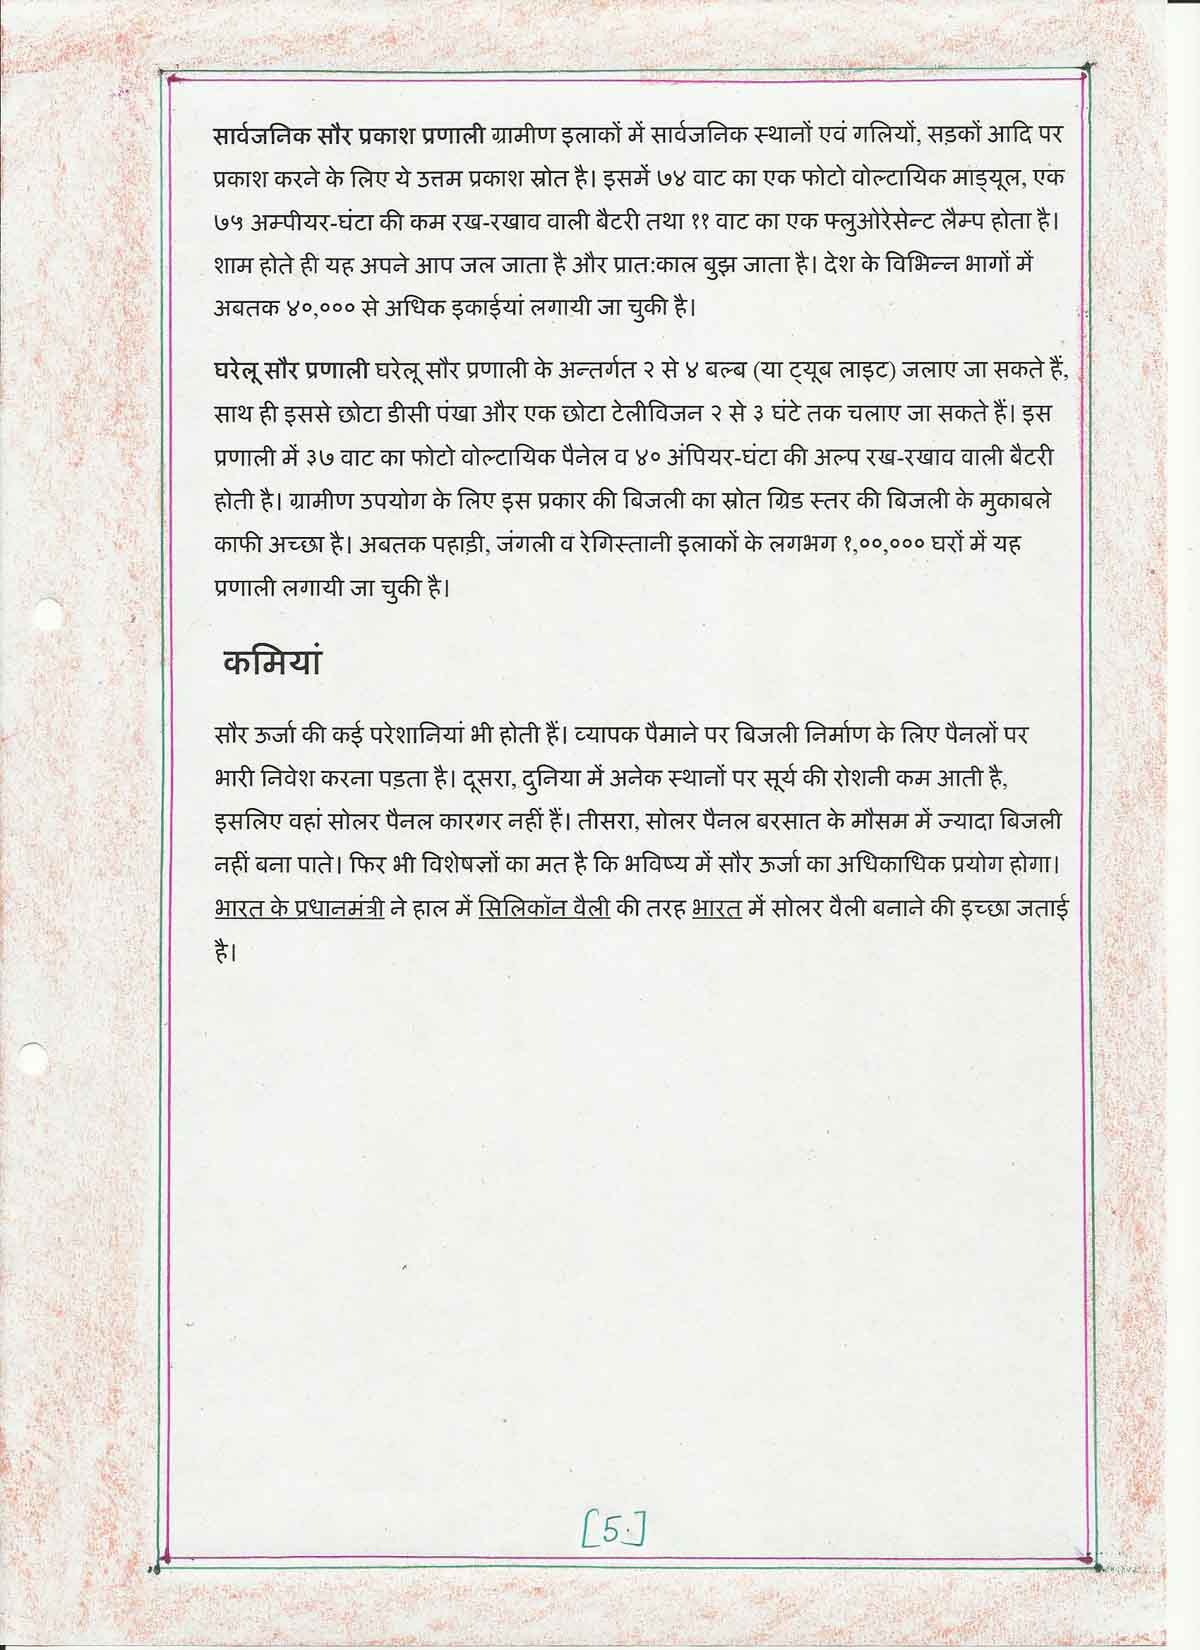 सार्वजनिक सौर प्रकाश प्रणाली ग्रामीण इलाकों में सार्वजनिक स्थानों एवं गलियों, सड़कों आदि पर
प्रकाश करने के लिए ये उत्तम प्रकाश स्रोत है। इसमें ७४ वाट का एक फोटो वोल्टायिक माड्यूल, एक
७५ अम्पीयर-घंटा की कम रख-रखाव वाली बैटरी तथा ११ वाट का एक फ्लुओरेसेन्ट लैम्प होता है।
शाम होते ही यह अपने आप जल जाता है और प्रात:काल बुझ जाता है। देश के विभिन्न भागों में
अबतक ४०,००० से अधिक इकाईयां लगायी जा चुकी है।
घरेलू सौर प्रणाली घरेलू सौर प्रणाली के अन्तर्गत २ से ४ बल्ब (या ट्यूब लाइट) जलाए जा सकते हैं,
साथ ही इससे छोटा डीसी पंखा और एक छोटा टेलीविजन २ से ३ घंटे तक चलाए जा सकते हैं। इस
प्रणाली में ३७ वाट का फोटो वोल्टायिक पैनेल व ४० अंपियर-घंटा की अल्प रख-रखाव वाली बैटरी
होती है। ग्रामीण उपयोग के लिए इस प्रकार की बिजली का स्रोत ग्रिड स्तर की बिजली के मुकाबले
काफी अच्छा है। अबतक पहाड़ी, जंगली व रेगिस्तानी इलाकों के लगभग १,००,००० घरों में यह
प्रणाली लगायी जा चुकी है।
कमियां
सौर ऊर्जा की कई परेशानियां भी होती हैं। व्यापक पैमाने पर बिजली निर्माण के लिए पैनलों पर
भारी निवेश करना पड़ता है। दूसरा, दुनिया में अनेक स्थानों पर सूर्य की रोशनी कम आती है,
इसलिए वहां सोलर पैनल कारगर नहीं हैं। तीसरा, सोलर पैनल बरसात के मौसम में ज्यादा बिजली
नहीं बना पाते। फिर भी विशेषज्ञों का मत है कि भविष्य में सौर ऊर्जा का अधिकाधिक प्रयोग होगा।
भारत के प्रधानमंत्री ने हाल में सिलिकॉन वैली की तरह भारत में सोलर वैली बनाने की इच्छा जताई
है।
[5.]